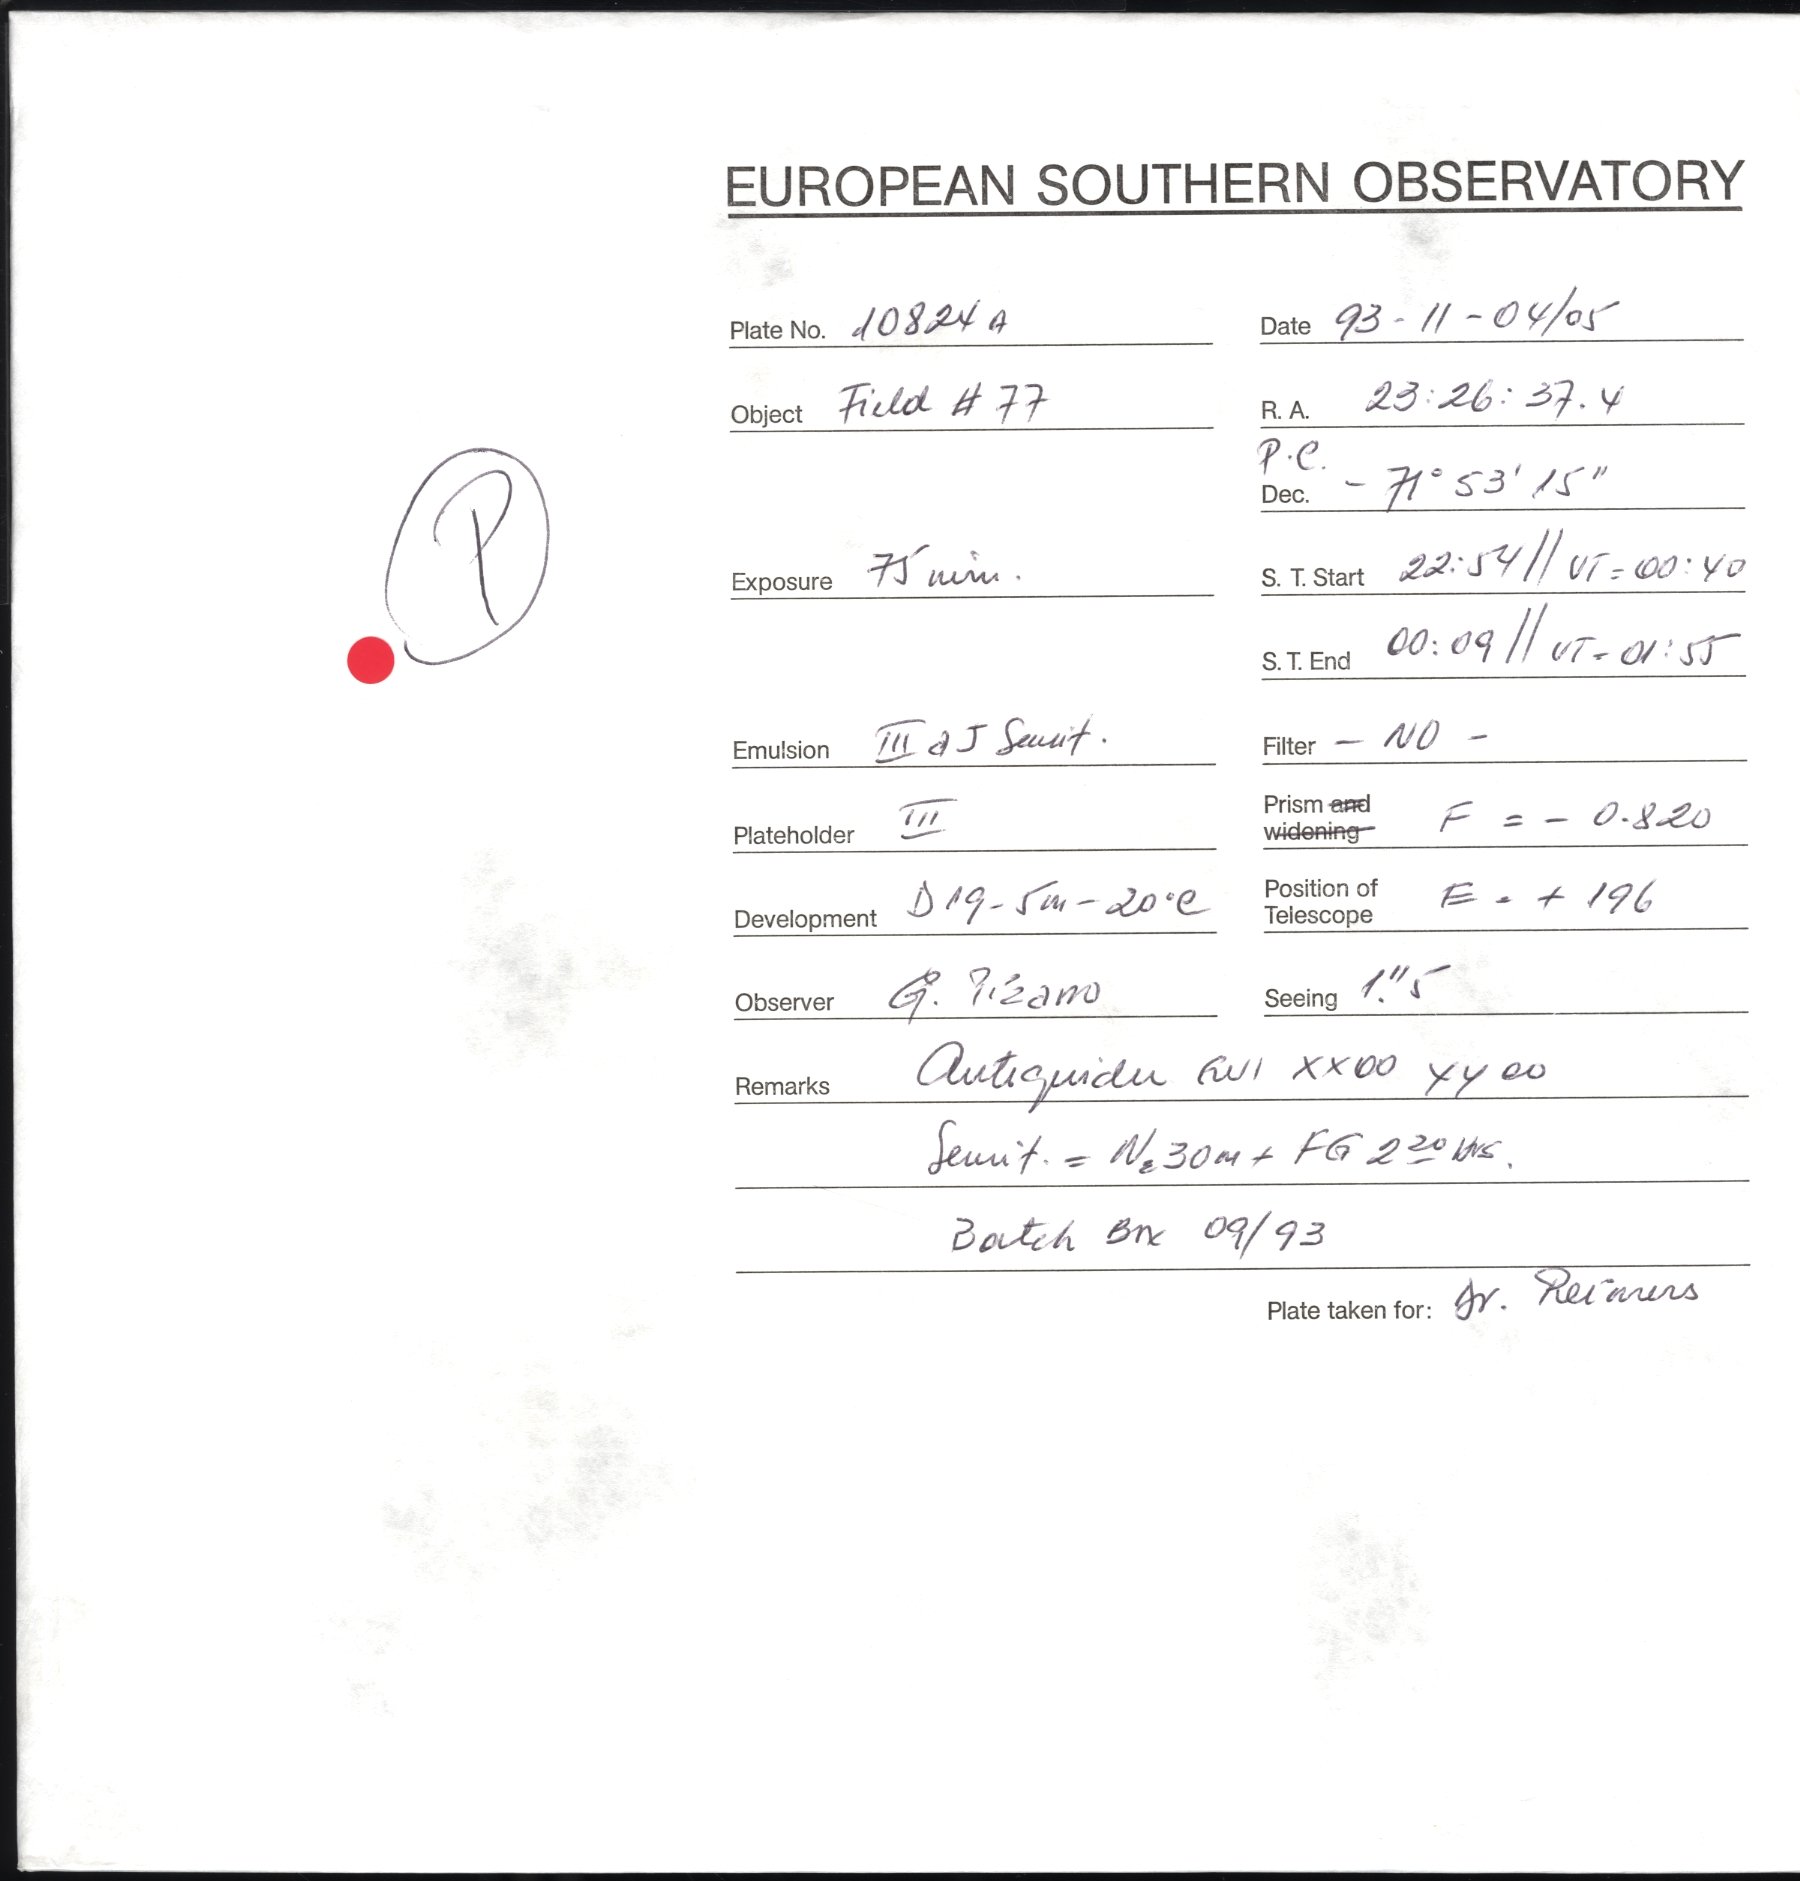 EUROPEAN SOUTHERN OBSERVATORY
Plate No. 10824 A
Date 93-11-04/05
Object Field # 77
R. A. 23:26:37.4
P.C.
Dec. - 71° 53' 15"
P
Exposure 75 min.
S. T. Start 22:54 // UT = 00:40
S. T. End 00:09 // UT = 01:55
Emulsion III a J Sensit.
Filter - NO -
Plateholder III
Prism and widening F = - 0.820
Development D19 - 5m - 20°C
Position of Telescope E = + 196
Observer G. Pizarro
Seeing 1."5
Remarks Autoguider XX00 YY00
Sensit. = N2 30m + FG 2 20 hrs.
Batch 09/93
Plate taken for: Dr. Reimers